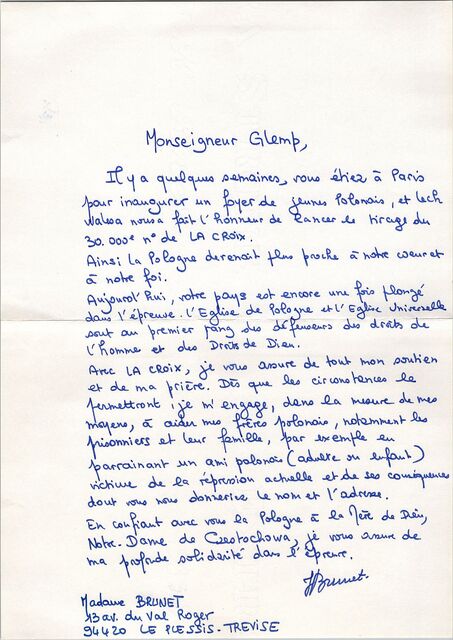 Monseigneur Glemp,
Il y a quelques semaines, vous étiez à Paris
pour inaugurer un foyer de jeunes Polonais, et Lech
Walesa nous a fait l'honneur de lancer le tirage du
30.000e n° de LA CROIX.
Ainsi la Pologne devenait plus proche à notre coeur et
à notre foi.
Aujourd'hui, votre pays est encore une fois plongé
dans l'épreuve. L'Eglise de Pologne et l'Eglise Universelle
sont au premier rang des défenseurs des droits de
l'homme et des Droits de Dieu.
Avec LA CROIX, je vous assure de tout mon soutien
et de ma prière. Dès que les circonstances le
permettront, je m'engage, dans la mesure de mes
moyens, à aider mes frères polonais, notamment les
prisonniers et leur famille, par exemple en
parrainant un ami polonais (adulte ou enfant)
victime de la répression actuelle et de ses conséquences
dont vous nous donneriez le nom et l'adresse.
En confiant avec vous la Pologne à la Mère de Dieu,
Notre-Dame de Czestochowa, je vous assure de
ma profonde solidarité dans l'épreuve.
JBrunet.
Madame BRUNET
13 av. du Val Roger
94420 LE PLESSIS-TREVISE